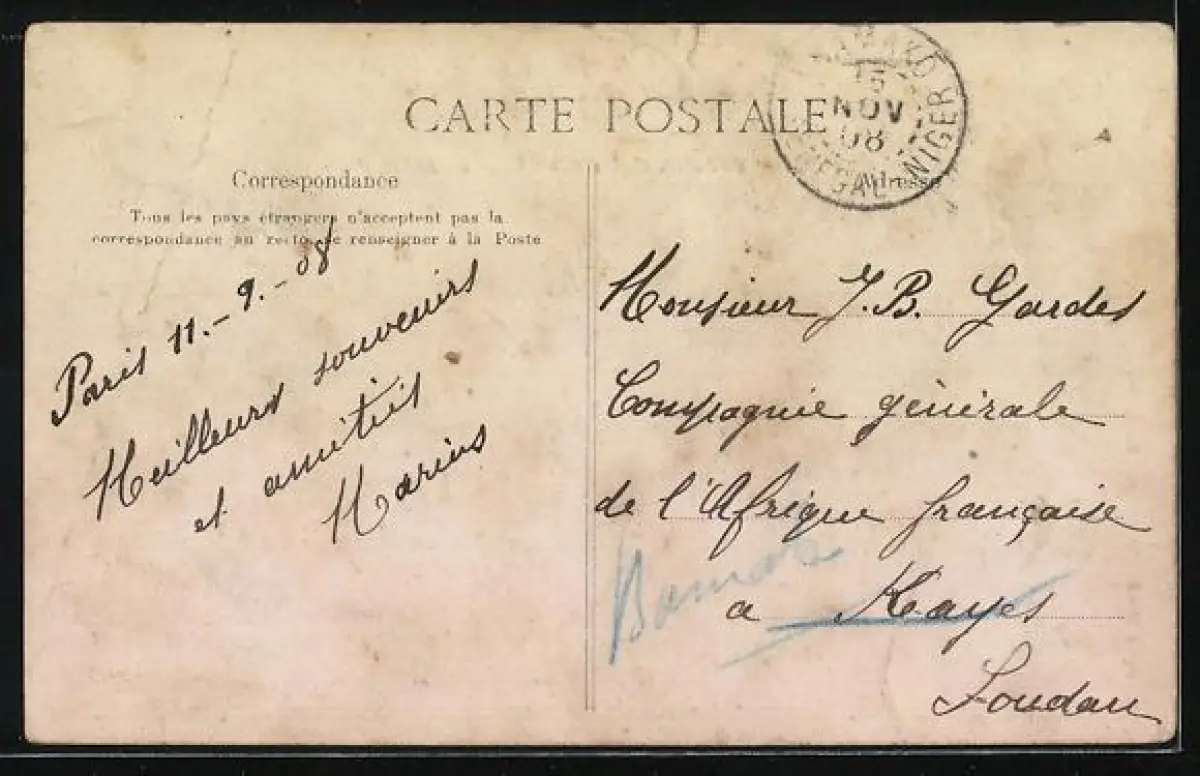 CARTE POSTALE
Correspondance
Tous les pays étrangers n'acceptent pas la
correspondance au recto, se renseigner à la Poste
Paris 11.-9.-08
Meilleurs souvenirs
et amitiés
Marius
BAMAKO
15
NOV
08
SENEGAL-NIGER
Adresse
Monsieur J.B. Gardes
Compagnie générale
de l'Afrique française
a Kayes
Soudan